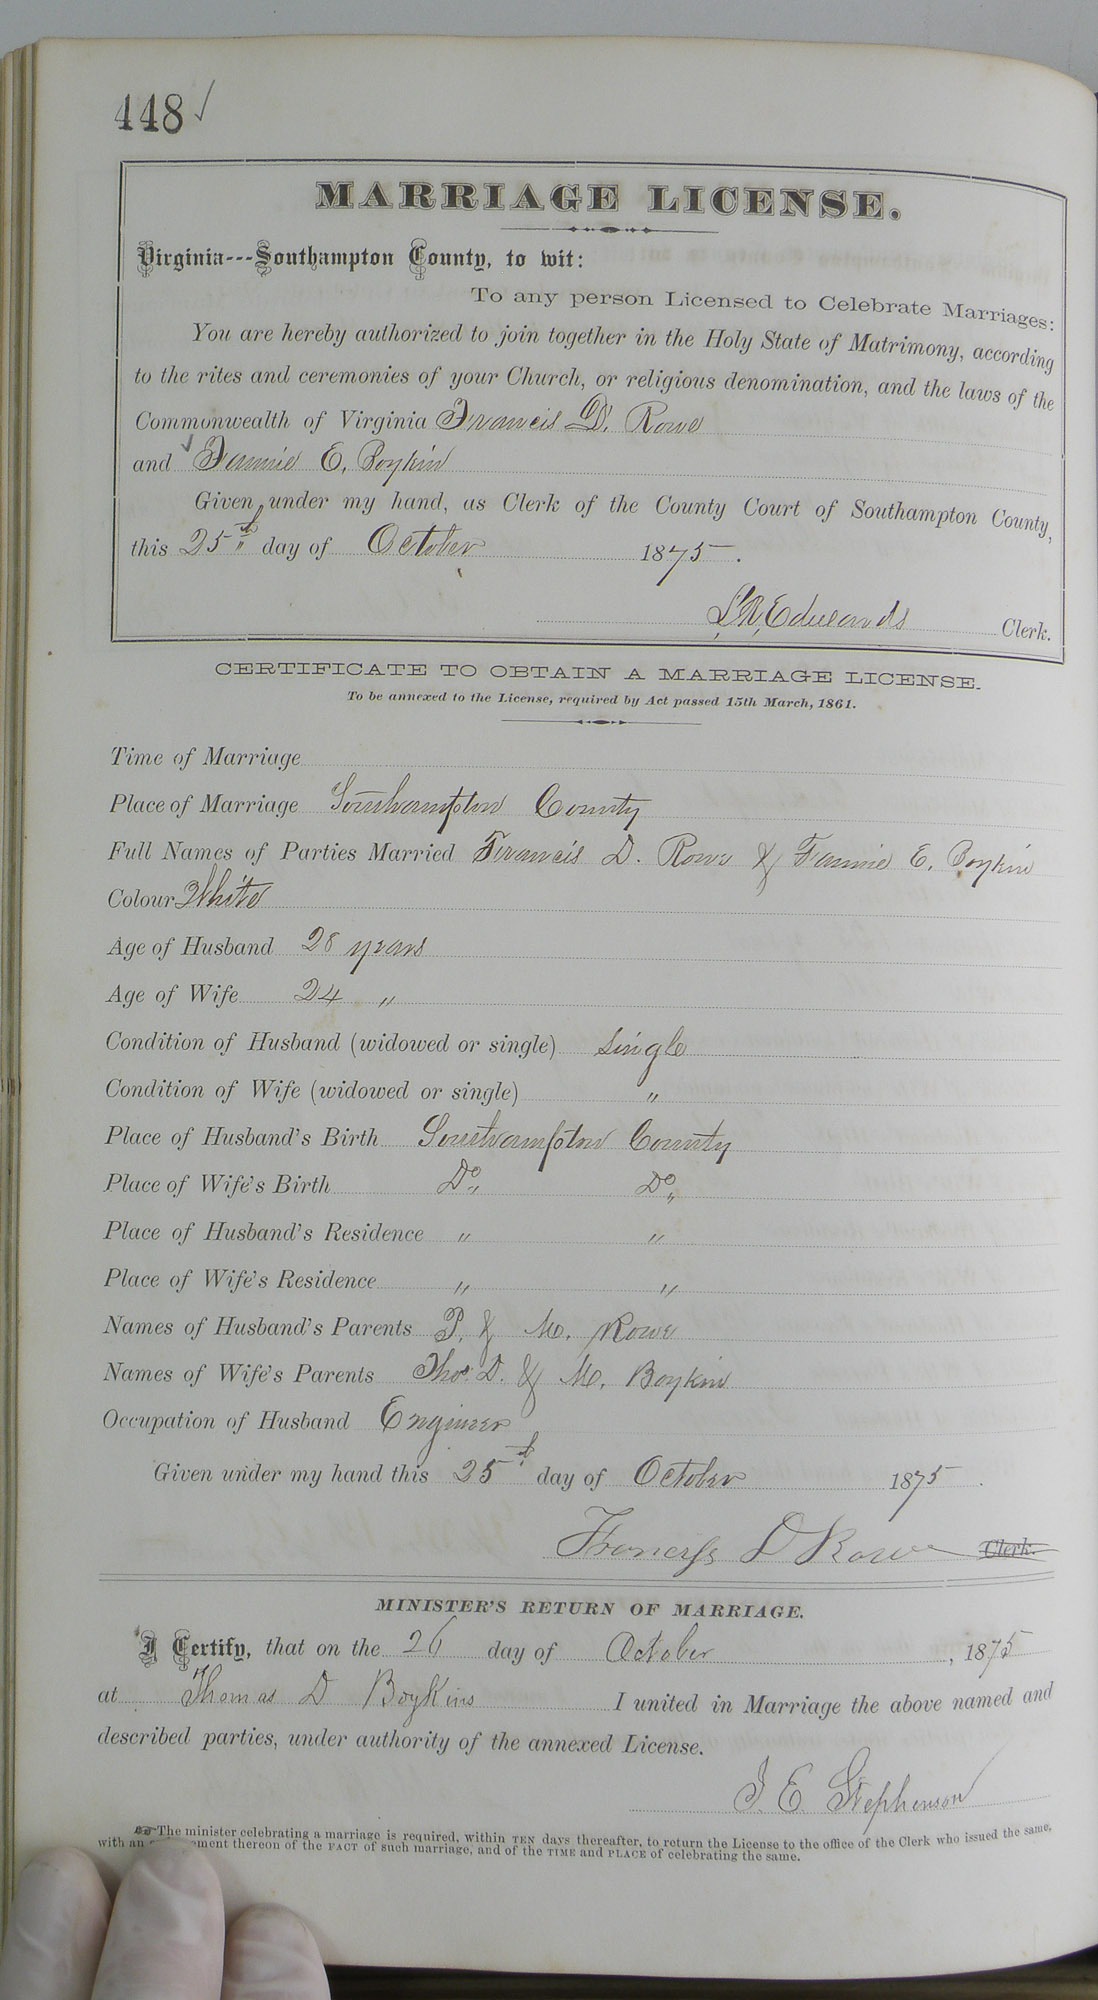 448 ✓
MARRIAGE LICENSE.
Virginia---Southampton County, to wit:
To any person Licensed to Celebrate Marriages:
You are hereby authorized to join together in the Holy State of Matrimony, according
to the rites and ceremonies of your Church, or religious denomination, and the laws of the
Commonwealth of Virginia Francis D. Rowe
and Fannie E. Boykin
Given under my hand, as Clerk of the County Court of Southampton County,
this 25th day of October 1875.
L. R. Edwards Clerk.
CERTIFICATE TO OBTAIN A MARRIAGE LICENSE.
To be annexed to the License, required by Act passed 15th March, 1861.
Time of Marriage
Place of Marriage Southampton County
Full Names of Parties Married Francis D. Rowe & Fannie E. Boykin
Colour White
Age of Husband 28 years
Age of Wife 24 "
Condition of Husband (widowed or single) single
Condition of Wife (widowed or single) "
Place of Husband's Birth Southampton County
Place of Wife's Birth Do Do
Place of Husband's Residence " "
Place of Wife's Residence " "
Names of Husband's Parents P. & M. Rowe
Names of Wife's Parents Thos. D. & M. Boykin
Occupation of Husband Engineer
Given under my hand this 25th day of October 1875.
Francis D Rowe Clerk.
MINISTER'S RETURN OF MARRIAGE.
I Certify, that on the 26 day of October, 1875
at Thomas D Boykins I united in Marriage the above named and
described parties, under authority of the annexed License.
J. E. Stephenson
The minister celebrating a marriage is required, within TEN days thereafter, to return the License to the office of the Clerk who issued the same,
with an ement thereon of the FACT of such marriage, and of the TIME and PLACE of celebrating the same.